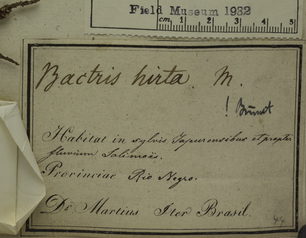 Field Museum 1932
cm 1 2 3 4 5
Bactris hirta M.
! Burret
Habitat in sylvis Japurensibus et propter
fluvium Solimoës.
Provinciae Rio Negro.
Dr. Martius Iter Brasil.